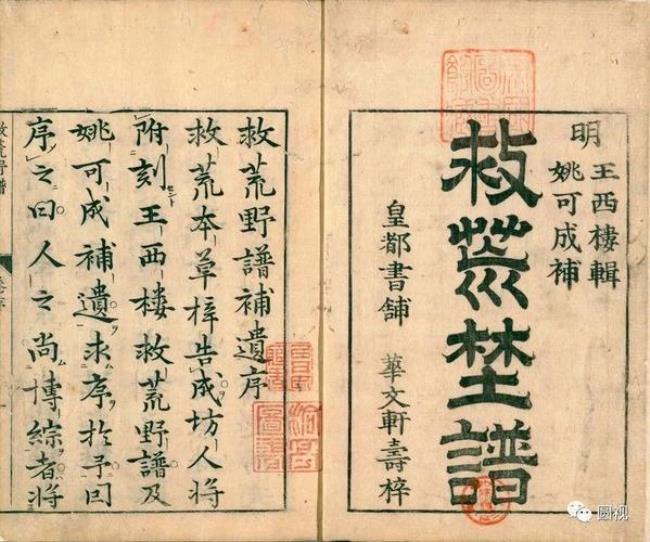 明
王西樓輯
姚可成補
救荒埜譜
皇都書舖 華文軒壽梓
救荒野譜補遺序
救荒本草梓告成坊人将
附刻王西樓救荒野譜及
姚可成補遺求序於予囙
序之曰人之尚博綜者将
圆视